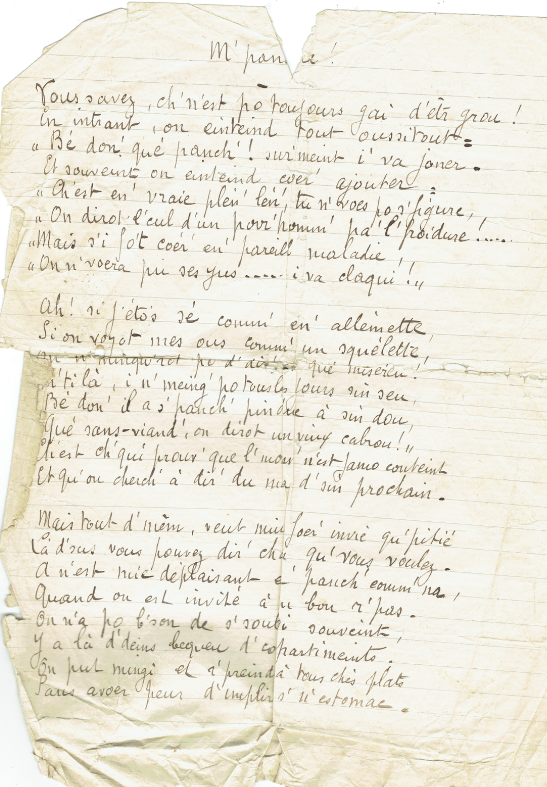 M' pan he !
Vous savez, ch'n'est po toujours gai d'êtr' grou !
En intrant, on einteind tout oussitout =
" Bé don' qué panch'! sur'meint i' va joner -
Et souveint on einteind coer' ajouter =
" Ch'est en' vraie plein' leu', tu n'voes po s'figure,
" On dirot l'cul d'un pour' homm' pa' l'froidure !.....
" Mais s'i fo't coer' en' pareill' maladie !
" On n'voera pu ses yus ..... i va claqui !"
Ah! si j'étos sé comm' en' allemette,
Si on voyot mes ous comm' un squélette,
On n' d'dir' qué miseru !
là, i n'meing' po tous les jours sin seu,
Bé don' il a s'panch' à sin dou,
Qué sans-viand', on dirot un vieux cabrou! "
Ch'est ch'qui prouv' que l'mon' n'est jamo conteint
Et qu'on cherch' à dir' du ma d'sin prochain.
Mais tout d'mêm, veut miu foer' invie qu'pitié
Là d'sus vous pouvez dir' cha qu'vous voulez.
A n'est mie deplaisant e' panch comm' na,
Quand on est invité à u bon r'pas.
On n'a po b'son de s'soubi souveint,
Y a là d'deins beqeu d'copartiments.
On put mingi et r'preind' à tous chés plats
Sans avoer peur d'implir s'n'estomac.